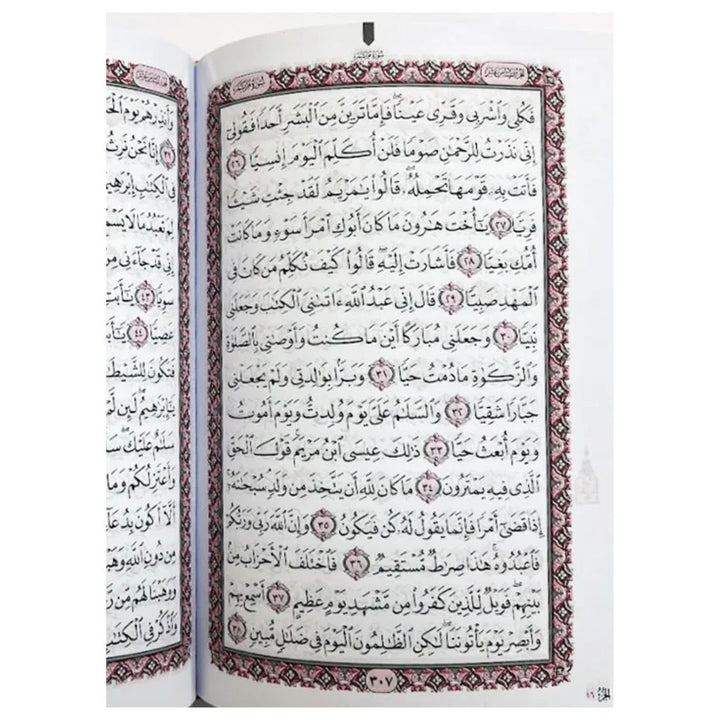 سُورَةُ مَرْيَمَ
الجُزءُ السَّادِسَ عَشَرَ سُورَةُ مَرْيَمَ
فَكُلِي وَٱشْرَبِي وَقَرِّي عَيْنًاۖ فَإِمَّا تَرَيِنَّ مِنَ ٱلْبَشَرِ أَحَدًا فَقُولِيٓ
إِنِّي نَذَرْتُ لِلرَّحْمَٰنِ صَوْمًا فَلَنْ أُكَلِّمَ ٱلْيَوْمَ إِنسِيًّا ٢٦
فَأَتَتْ بِهِۦ قَوْمَهَا تَحْمِلُهُۥۖ قَالُوا۟ يَٰمَرْيَمُ لَقَدْ جِئْتِ شَيْـًٔا
فَرِيًّا ٢٧ يَٰٓأُخْتَ هَٰرُونَ مَا كَانَ أَبُوكِ ٱمْرَأَ سَوْءٍ وَمَا كَانَتْ
أُمُّكِ بَغِيًّا ٢٨ فَأَشَارَتْ إِلَيْهِۖ قَالُوا۟ كَيْفَ نُكَلِّمُ مَن كَانَ فِي
ٱلْمَهْدِ صَبِيًّا ٢٩ قَالَ إِنِّي عَبْدُ ٱللَّهِ ءَاتَىٰنِيَ ٱلْكِتَٰبَ وَجَعَلَنِي
نَبِيًّا ٣٠ وَجَعَلَنِي مُبَارَكًا أَيْنَ مَا كُنتُ وَأَوْصَٰنِي بِٱلصَّلَوٰةِ
وَٱلزَّكَوٰةِ مَا دُمْتُ حَيًّا ٣١ وَبَرًّۢا بِوَٰلِدَتِي وَلَمْ يَجْعَلْنِي
جَبَّارًا شَقِيًّا ٣٢ وَٱلسَّلَٰمُ عَلَيَّ يَوْمَ وُلِدتُّ وَيَوْمَ أَمُوتُ
وَيَوْمَ أُبْعَثُ حَيًّا ٣٣ ذَٰلِكَ عِيسَى ٱبْنُ مَرْيَمَۖ قَوْلَ ٱلْحَقِّ
ٱلَّذِي فِيهِ يَمْتَرُونَ ٣٤ مَا كَانَ لِلَّهِ أَن يَتَّخِذَ مِن وَلَدٍۖ سُبْحَٰنَهُۥٓۚ
إِذَا قَضَىٰٓ أَمْرًا فَإِنَّمَا يَقُولُ لَهُۥ كُن فَيَكُونُ ٣٥ وَإِنَّ ٱللَّهَ رَبِّي وَرَبُّكُمْ
فَٱعْبُدُوهُۚ هَٰذَا صِرَٰطٌ مُّسْتَقِيمٌ ٣٦ فَٱخْتَلَفَ ٱلْأَحْزَابُ مِنۢ
بَيْنِهِمْۖ فَوَيْلٌ لِّلَّذِينَ كَفَرُوا۟ مِن مَّشْهَدِ يَوْمٍ عَظِيمٍ ٣٧ أَسْمِعْ بِهِمْ
وَأَبْصِرْ يَوْمَ يَأْتُونَنَاۖ لَٰكِنِ ٱلظَّٰلِمُونَ ٱلْيَوْمَ فِي ضَلَٰلٍ مُّبِينٍ ٣٨
٣٠٧
الجزء ١٦
وَأَنذِرْهُمْ يَوْمَ
٣٩ إِنَّا نَحْنُ نَرِثُ
فِي ٱلْكِتَٰبِ
لِمَ تَعْبُدُ مَا لَا
إِنِّي قَدْ جَآءَنِي مِنَ
سَوِيًّا ٤٣
عَصِيًّا ٤٤
فَتَكُونَ
يَٰٓإِبْرَٰهِيمُۖ لَئِن
سَلَٰمٌ عَلَيْكَۖ
وَأَعْتَزِلُكُمْ وَمَا
أَلَّآ أَكُونَ
مِن دُونِ ٱللَّهِ
وَوَهَبْنَا لَهُم مِّن
وَٱذْكُرْ فِي